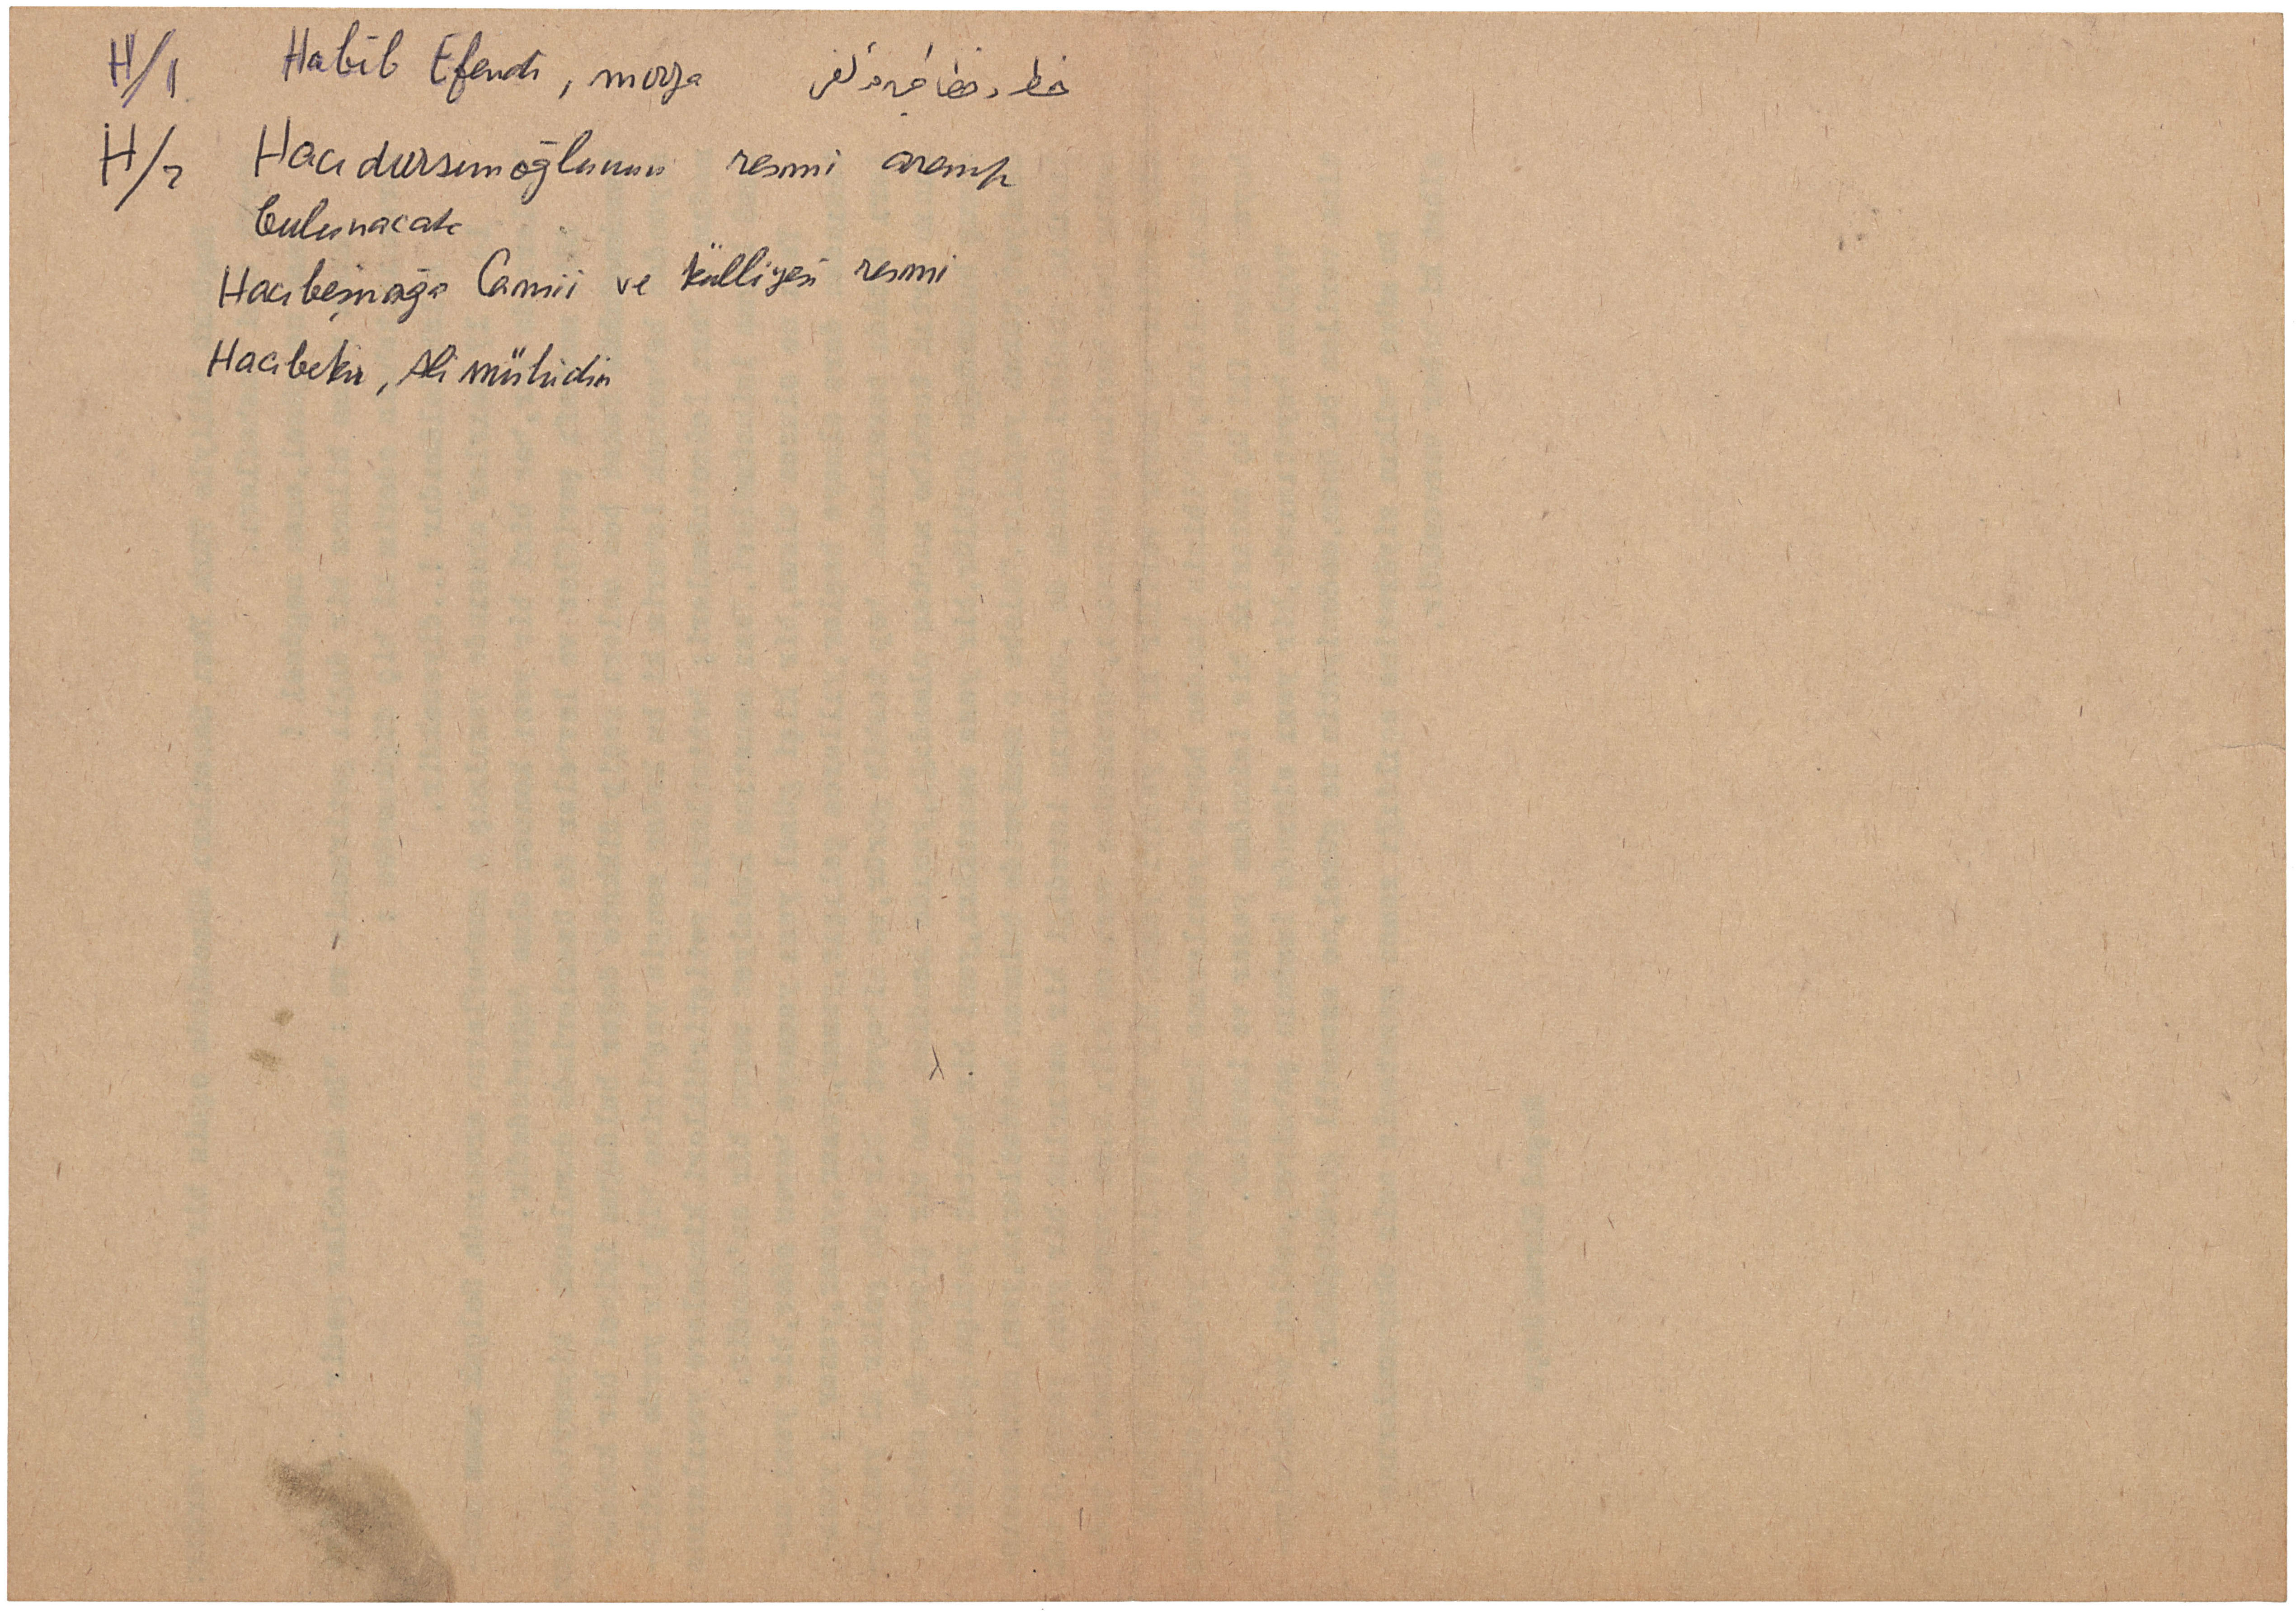 H/1 Habib Efendi, mirza
H/2 Hacıdursunoğlunun resmi aranıp
bulunacak
Hacıbeşirağa Camii ve külliyesi resmi
Hacıbekir, Ali Mühidin